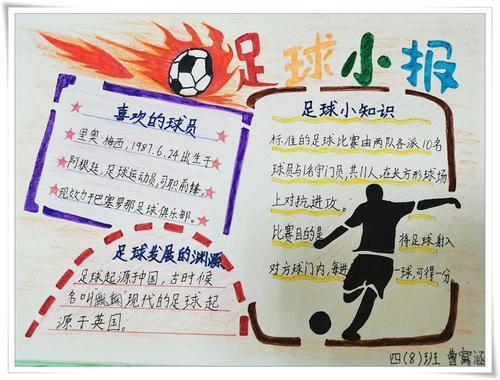 足球小报
喜欢的球员
里奥·梅西,1987.6.24出生于
阿根廷,足球运动员,司职前锋,
现效力于巴塞罗那足球俱乐部。
足球发展的渊源
足球起源于中国,古时候
名叫蹴鞠,现代的足球起
源于英国。
足球小知识
标准的足球比赛由两队各派10名
球员与1名守门员,共11人,在长方形球场
上对抗、进攻。
比赛目的是 将足球射入
对方球门内,每进 一球,可得一分
四(8)班 曹寓涵